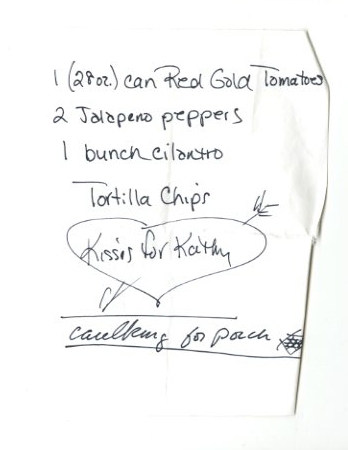 1 (28oz.) can Red Gold Tomatoes
2 Jalapeno peppers
1 bunch cilantro
Tortilla Chips
Kisses for Kathy
caulking for porch